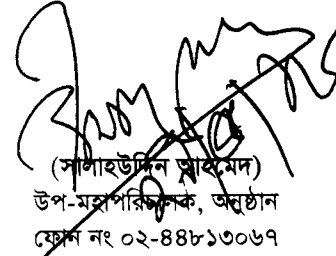 (সালাহউদ্দিন আহমেদ)
উপ-মহাপরিচালক, অনুষ্ঠান
ফোন নং ০২-৪৪৮১৩০৬৭